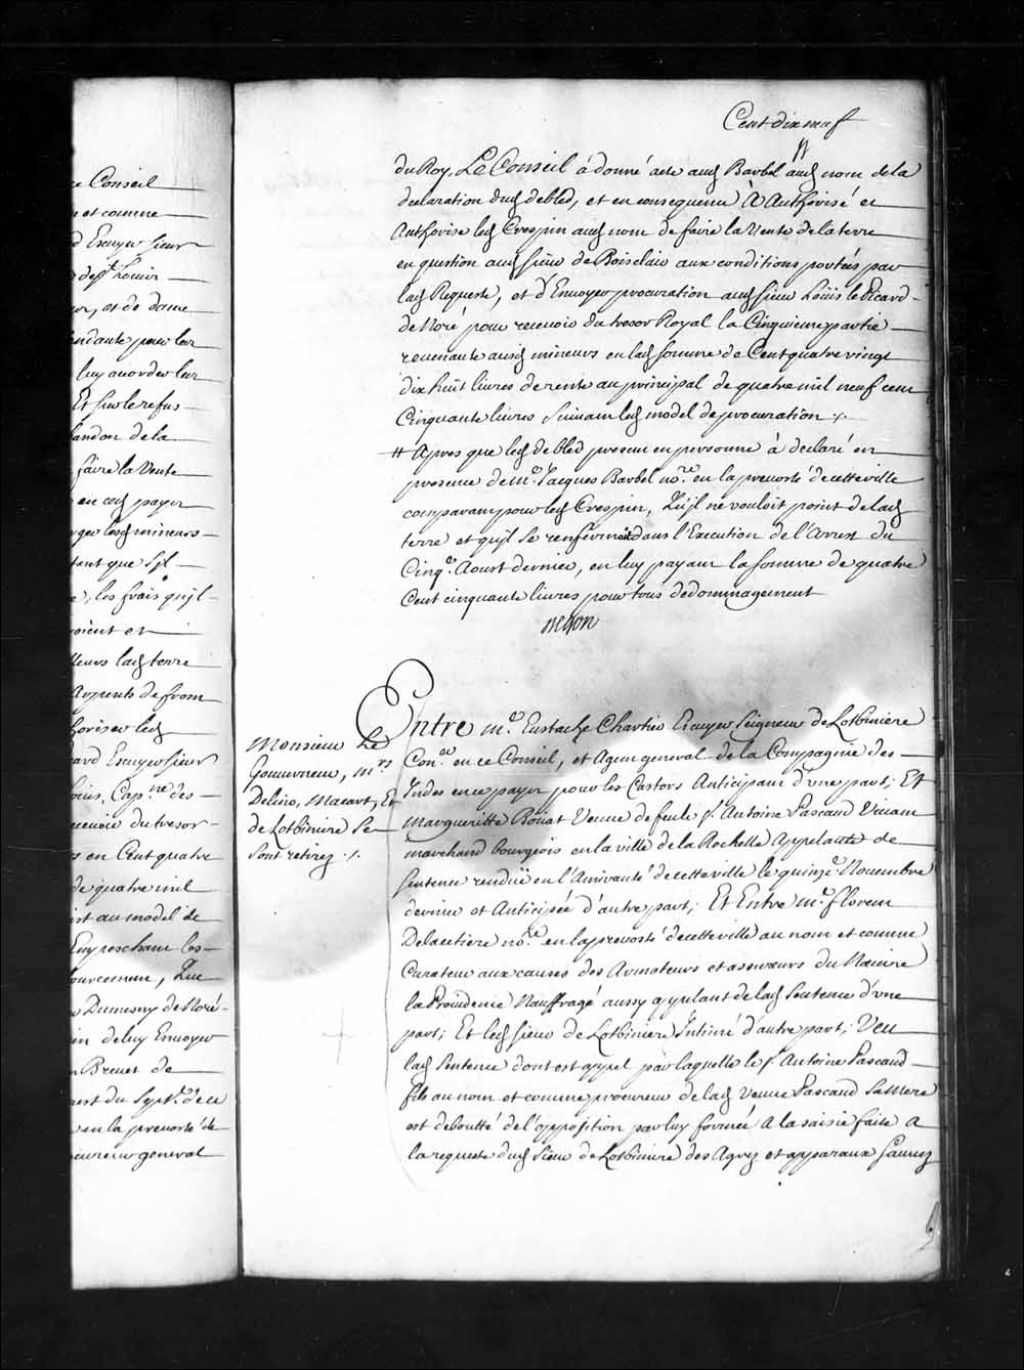 e Conseil
et comme
d Escuyer sieur
de pt. Louis
er, et de dame
endante pour leur
luy accorder leur
Et sur le refus
andon de la
faire la Vente
en cas payer
ger lesd mineurs
tant que S'jl
, les frais qujl
oient et
leurs lad terre
Arpents de front
horiser led
ard Escuyer sieur
Cap.ne des
recevoir du tresor
s en Cent quatre
de quatre mil
nt au model de
Empeschant les
ourcemun, Que
Dumesny de Noré
in de luy Envoyer
Brevet de
du Sept.re de la
en la prevosté de
cureur general
Cent dix neuf
du Roy, Le Conseil à donné acte aud Barbel aud nom de la
declaration dud de bled, et en consequence A Authorisé et
Authorise led Crespin aud nom de faire la Vente de la terre
en question aud sieur de Boisclair aux conditions portées par
lad Requeste, et d'Envoyer procuration aud sieur Loüis le Picard
de Noré pour recevoir du tresor Royal la Cinquieme partie
revenante ausd mineurs en lad somme de Cent quatre vingt
dix huit livres de rente au principal de quatre mil neuf cent
Cinquante livres Suivant led model de procuration ./.
# Apres que led de bled present en personne à declaré en
presence de Me. Jacques Barbel no.re en la prevosté de cette ville
comparant pour led Crespin, Qu'jl ne vouloit point de lad
terre et qujl se renfermoit dans l'Execution de l'Arrest du
Cinqe. Aoust dernier, en luy payant la somme de quatre
Cent cinquante livres pour tous dedommagement
Begon
Monsieur Le
Gouverneur, Mrs
Delino, Macart, Et
de Lotbiniere Se
Sont retirez ./.
Entre Me. Eustache Chartier Escuyer Seigneur de Lotbiniere
Con.er en ce Conseil, et Agent general de la Compagnie des
Indes en ce payer pour les Castors Anticipant d'une part; Et
Margueritte Boüat Veuve de feu le s.r Antoine Pascaud Vivant
marchand bourgeois en la ville de la Rochelle Appelante de
sentence rendüe en l'Amirauté de cette ville le quinze Novembre
dernier et Anticipée d'autre part; Et Entre Me. florent
Delacetiere no.re en la prevosté de cette ville au nom et comme
Curateur aux causes des Armateurs et assureurs du Navire
la Providence Nauffragé aussy appelant de lad Sentence d'une
part; Et led sieur de Lotbiniere Intimé d'autre part; Veu
lad Sentence dont est appel par laquelle le s.r Antoine Pascaud
fils au nom et comme procureur de lad Veuve Pascaud Sa Mere
est deboutté de l'opposition par luy formée A la saisie faite A
la requeste dud Sieur de Lotbiniere des Agrez et apparaux Sauvez